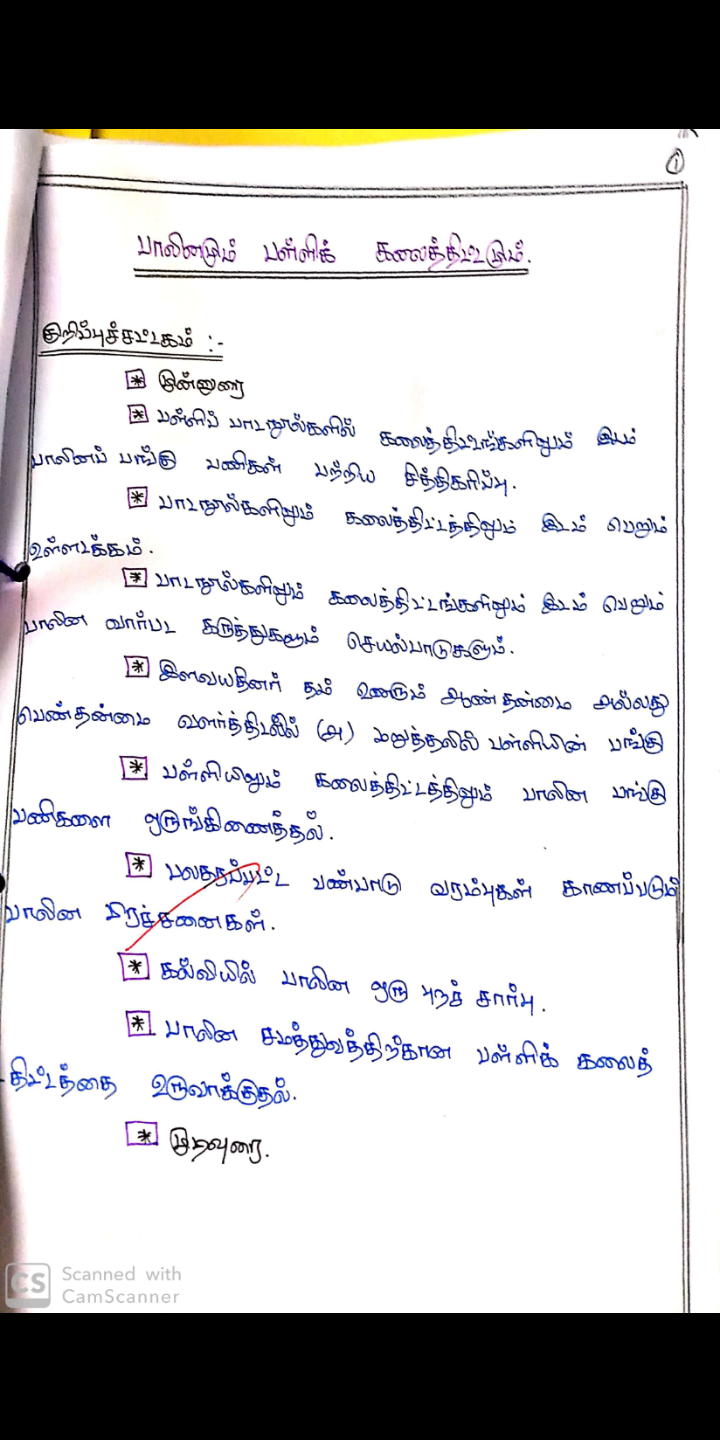 ①
பாலினமும் பள்ளிக் கலைத்திட்டமும்.
குறிப்புச்சட்டகம் :-
* முன்னுரை
* பள்ளிப் பாடநூல்களில் கலைத்திட்டங்களிலும் இடம்
பாலினப் பாங்கு பணிகள் பற்றிய சித்திகரிப்பு.
* பாடநூல்களிலும் கலைத்திட்டத்திலும் இடம் பெறும்
உள்ளடக்கம்.
* பாடநூல்களிலும் கலைத்திட்டங்களிலும் இடம் பெறும்
பாலின வார்பட கருத்துகளும் செயல்பாடுகளும்.
* இளவயதினர் தம் உணரும் ஆண்தன்மை அல்லது
பெண்தன்மை வளர்த்திடலில் (அ) மறுத்தலில் பள்ளியின் பங்கு
* பள்ளியிலும் கலைத்திட்டத்திலும் பாலின பங்கு
பணிகளை ஒருங்கிணைத்தல்.
* பலதரப்பட்ட பண்பாடு வரம்புகள் காணப்படும்
பாலின பிரச்சனைகள்.
* கல்வியில் பாலின ஒரு புறச் சார்பு.
* பாலின சமத்துவத்திற்கான பள்ளிக் கலைத்
திட்டத்தை உருவாக்குதல்.
* முடிவுரை.
CS Scanned with
CamScanner